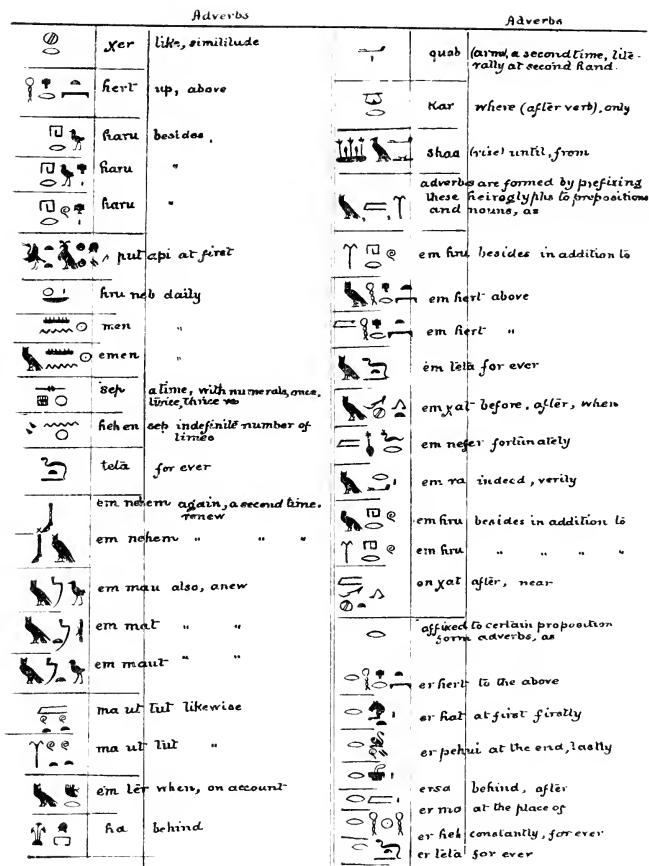 Adverbs
χer like, simililude
hert up, above
haru besides,
haru "
haru "
put api at first
hru neb daily
men "
emen "
sep a time, with numerals, once,
twice, thrice
hehen sep indefinite number of
times
telā for ever
em nehem again, a second time.
renew
em nehem " " "
em mau also, anew
em mat " "
em maut " "
ma ut tut likewise
ma ut tut "
em ter when, on account
ha behind
Adverbs
quab (arm), a second time, lite-
rally at second hand.
Kar where (after verb), only
shaa (rise) until, from
adverbs are formed by prefixing
these heiroglyphs to prepositions
and nouns, as
em hru besides in addition to
em hert above
em hert "
em telā for ever
em χat before, after, when
em nefer fortunately
em ra indeed, verily
em hru besides in addition to
em hru " " " "
on χat after, near
affixed to certain proposition
form adverbs, as
er hert to the above
er hat at first firstly
er pehui at the end, lastly
ersa behind, after
er mo at the place of
er heh constantly, for ever
er telā for ever